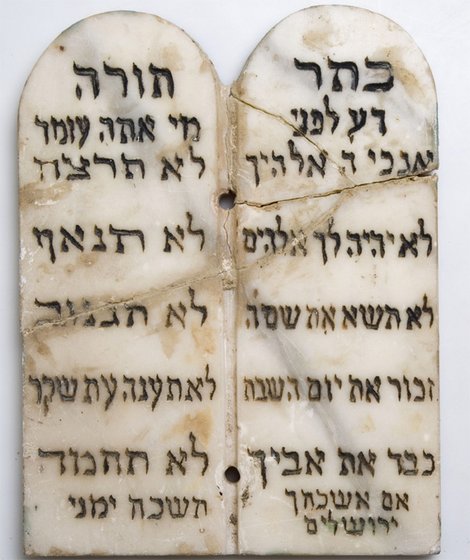 כתר
דע לפני
אנכי ד אלהיך
לא יהיה לך אלהים
לא תשא את שמה
זכור את יום השבת
כבד את אביך
אם אשכחך
ירושלים
תורה
מי אתה עומד
לא תרצח
לא תנאף
לא תגנוב
לא תענה עת שקר
לא תחמוד
תשכח ימני